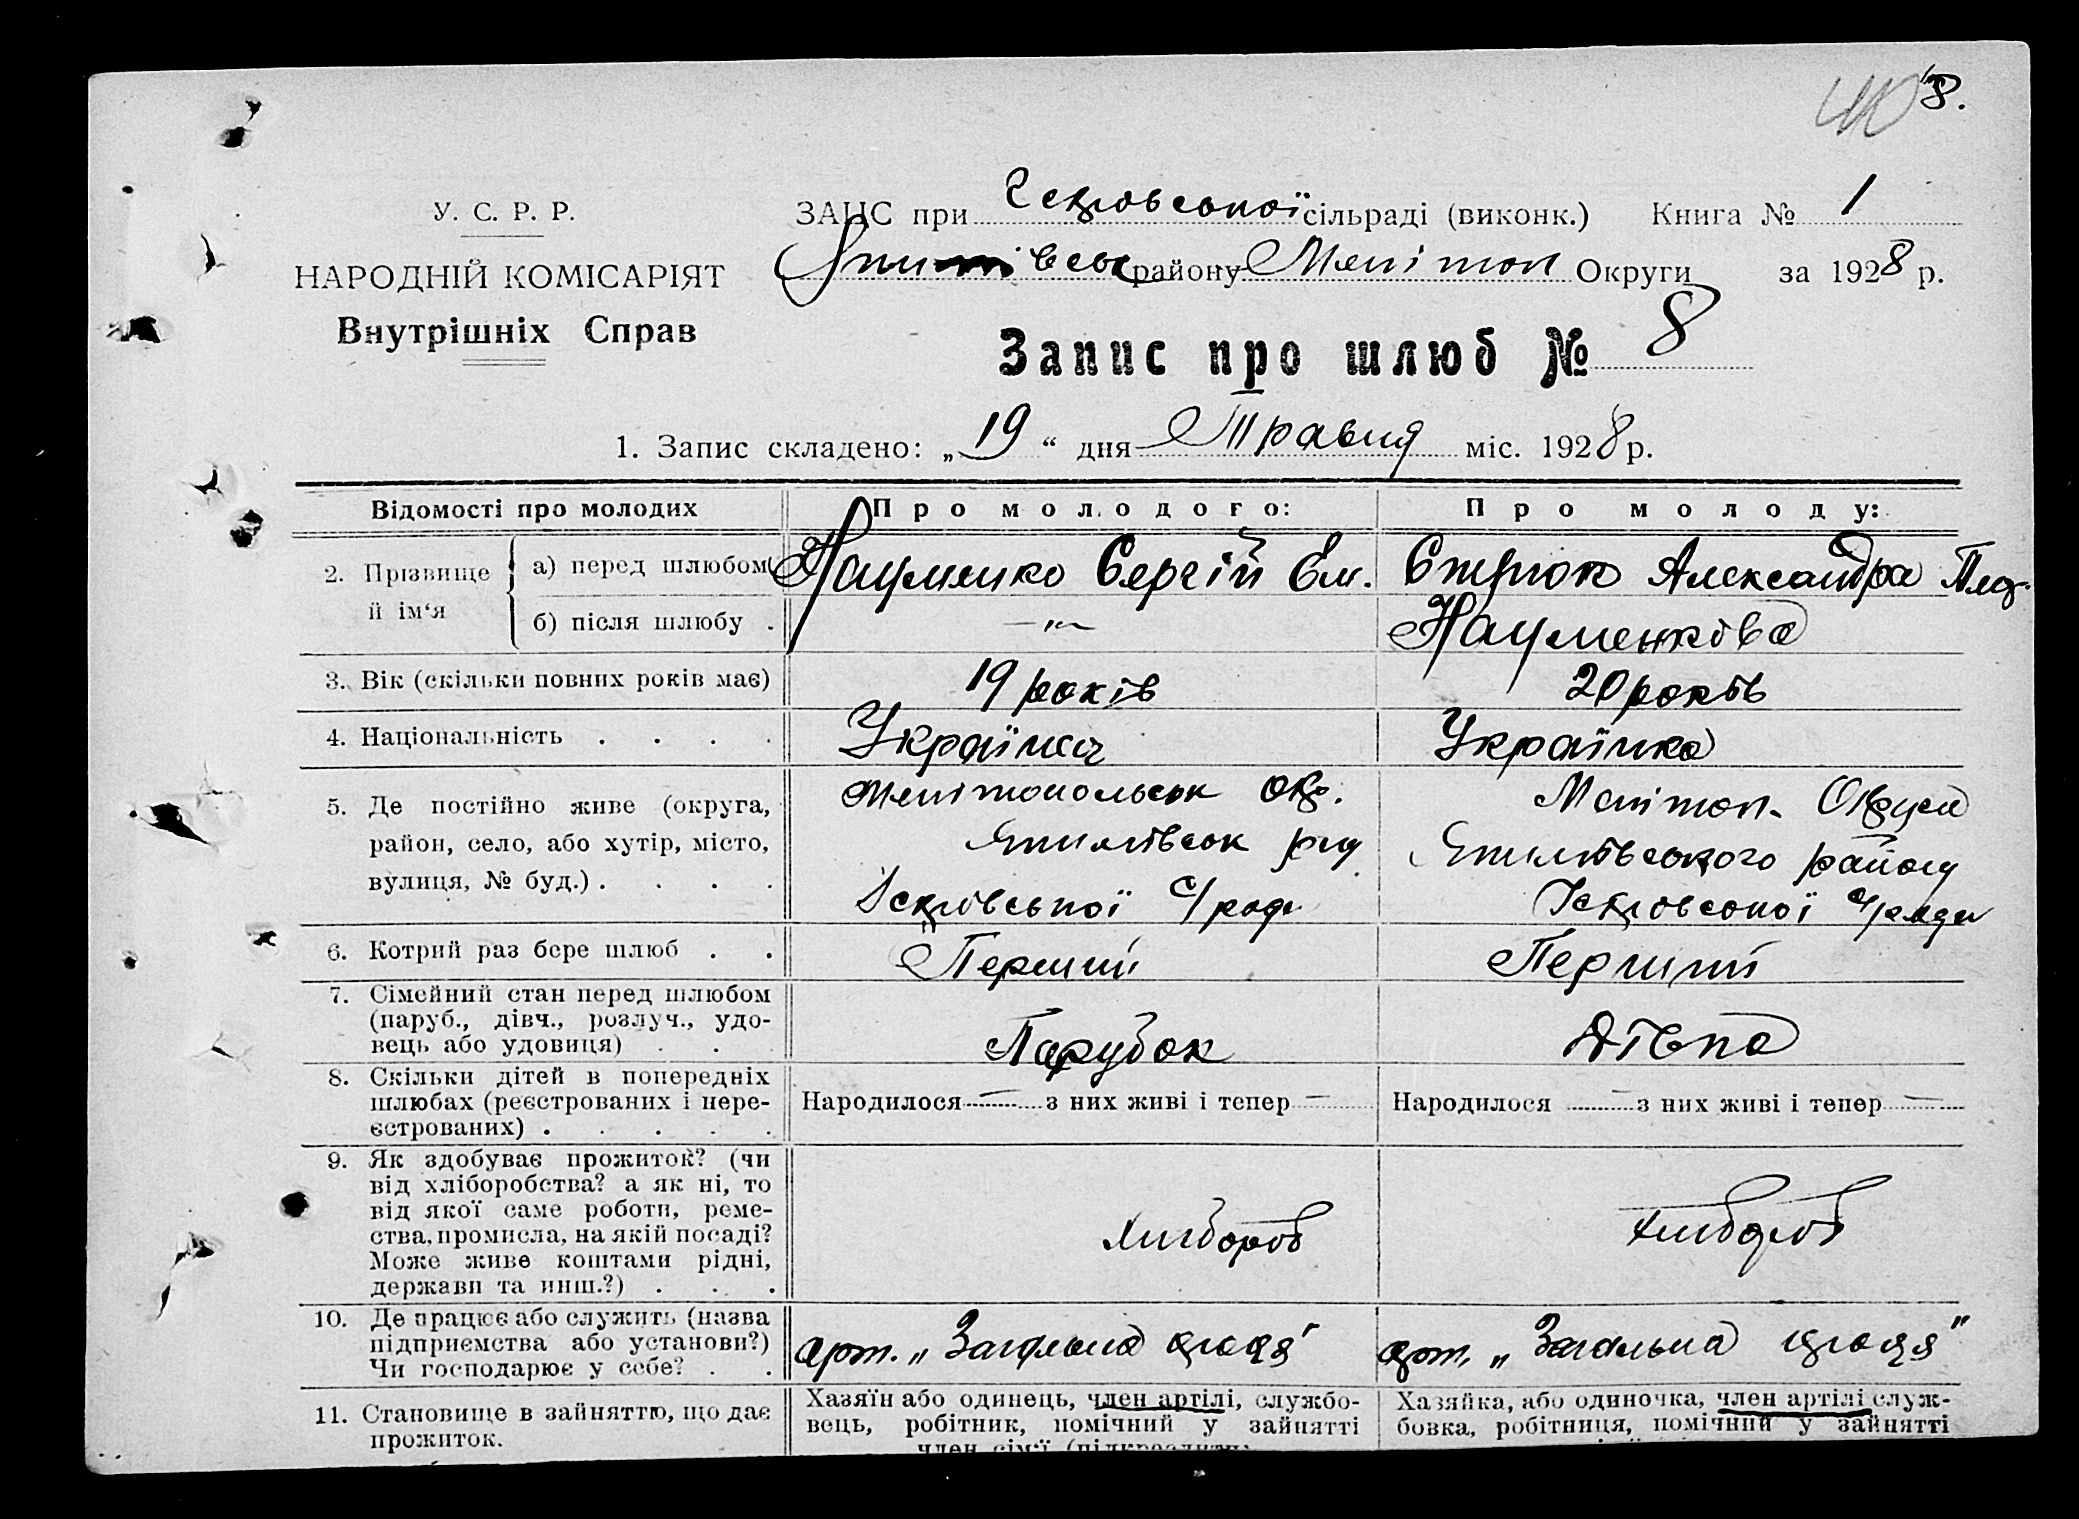 40 8.
У. С. Р. Р.
НАРОДНІЙ КОМІСАРІЯТ
Внутрішніх Справ
ЗАЦС при сільраді (виконк.) Книга № 1
району Мелітоп Округи за 1928 р.
Запис про шлюб № 8
1. Запис складено: „19“ дня Травня міс. 1928 р.
Відомості про молодих
Про молодого:
Про молоду:
2. Прізвище й ім‘я
а) перед шлюбом
Науменко Сергій Ем.
Стрюк Александра
б) після шлюбу .
—„—
Науменкова
3. Вік (скільки повних років має)
19 років
20 років
4. Національність . . . .
Українец
Українка
5. Де постійно живе (округа,
район, село, або хутір, місто,
вулиця, № буд.) . . . .
Мелітопольськ окр.
с/рад.
Мелітоп. Округа
району
с/ради
6. Котрий раз бере шлюб . .
Перший
Перший
7. Сімейний стан перед шлюбом
(паруб., дівч., розлуч., удо-
вець або удовиця) . .
Парубок
Дівка
8. Скільки дітей в попередніх
шлюбах (реєстрованих і нере-
єстрованих) . . . . .
Народилося — з них живі і тепер —
Народилося — з них живі і тепер —
9. Як здобуває прожиток? (чи
від хліборобства? а як ні, то
від якої саме роботи, реме-
ства, промисла, на якій посаді?
Може живе коштами рідні,
держави та инш.?) . . .
хлібороб
хлібороб
10. Де працює або служить (назва
підприємства або установи?)
Чи господарює у себе? . .
арт. „Загальна праця“
арт. „Загальна праця“
11. Становище в зайняттю, що дає
прожиток.
Хазяїн або одинець, член артілі, службо-
вець, робітник, помічний у зайнятті
член сім‘ї (підкреслить)
Хазяйка, або одиночка, член артілі служ-
бовка, робітниця, помічний у зайнятті